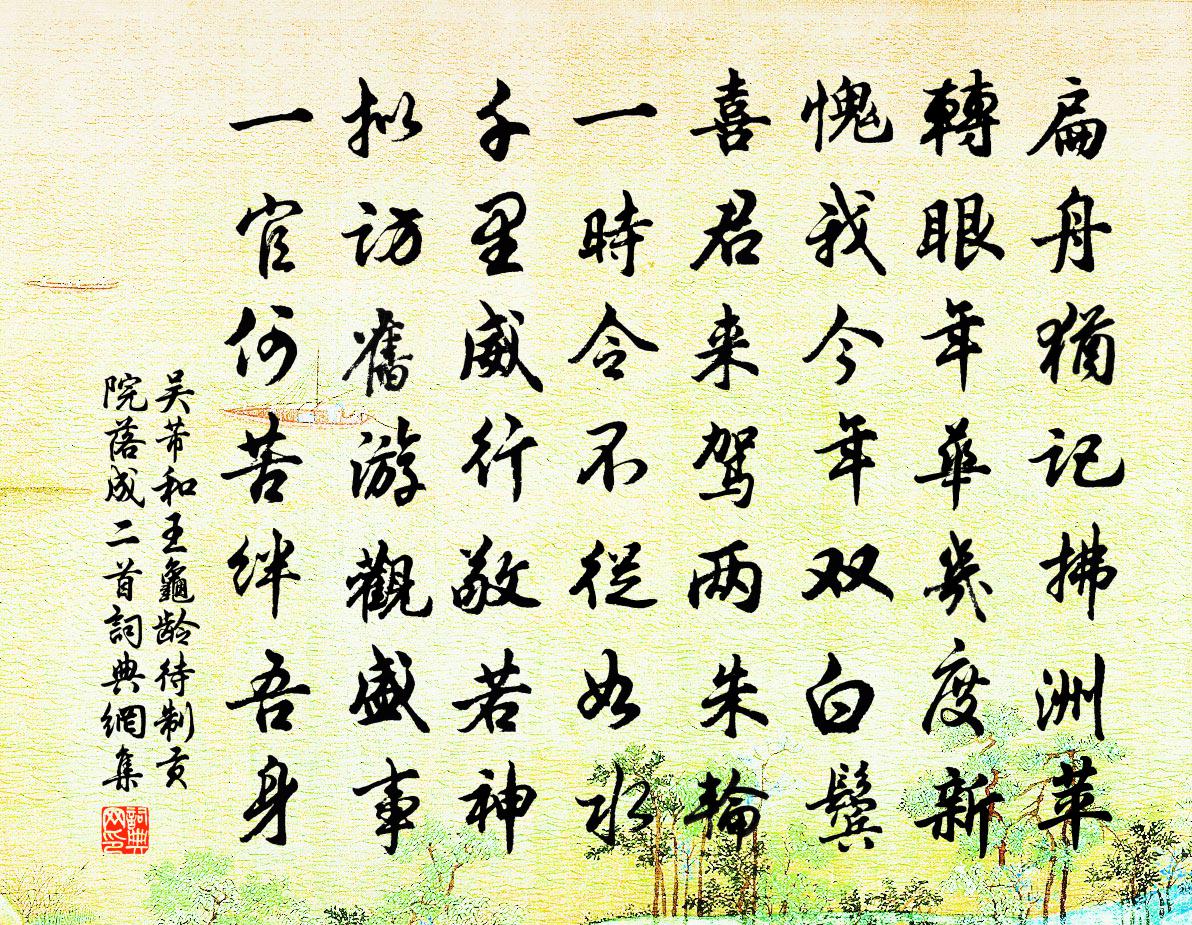 扁舟猶记拂洲苹
轉眼年華幾度新
愧我今年双白鬓
喜君来驾两朱輪
一時令不從如水
千里威行敬若神
拟访舊游觀盛事
一官何苦绊吾身
吴芾和王龜龄待制贡
院落成二首詞典網集
詞典網印